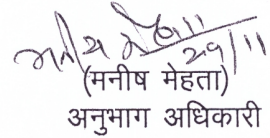 मनीष मेहता
29/11
(मनीष मेहता)
अनुभाग अधिकारी